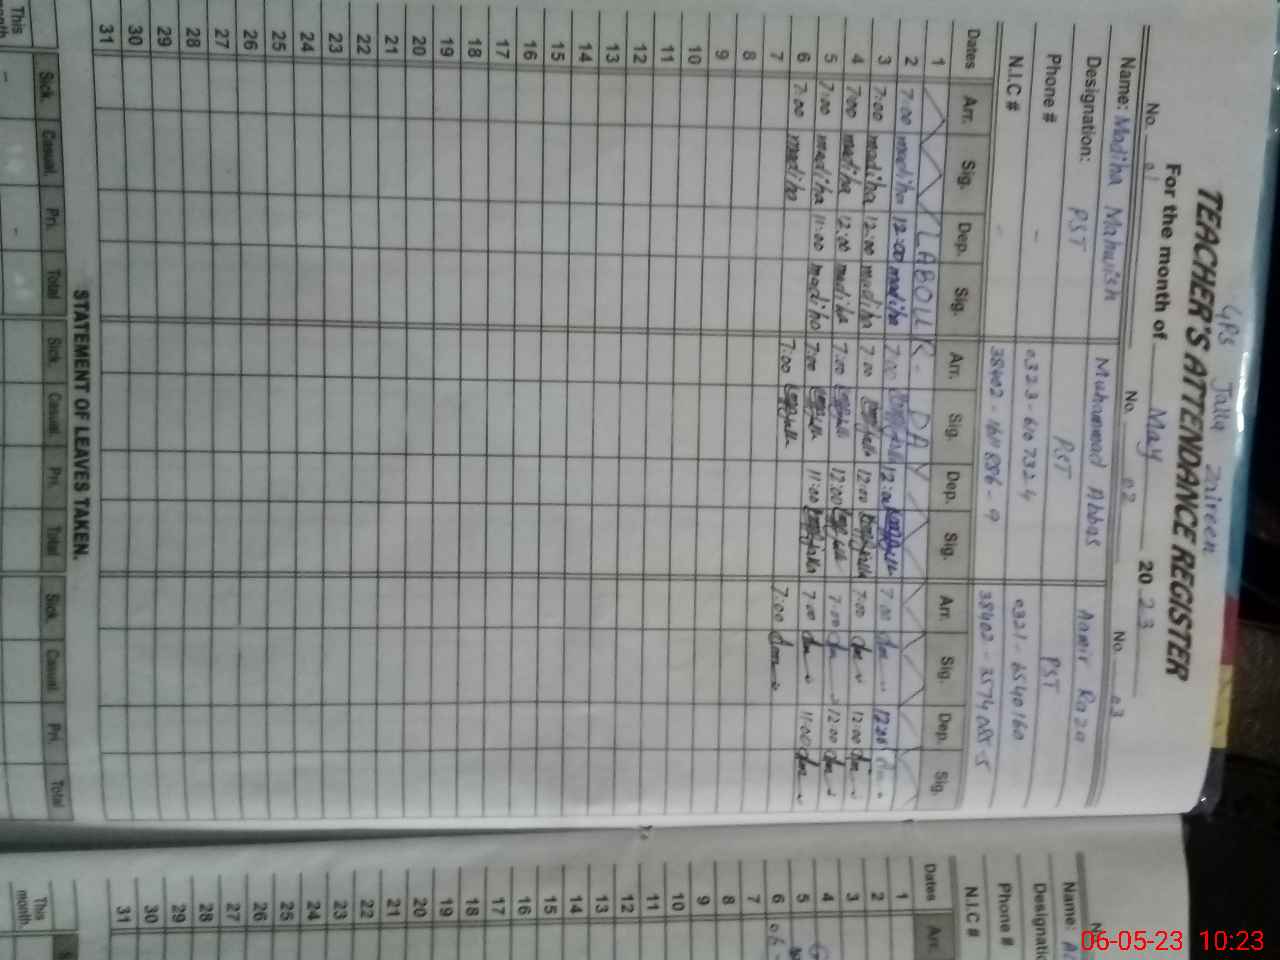 GPS Jalla
TEACHER'S ATTENDANCE REGISTER
For the month of May 2023
No. 01 No. 02 No. 03
Name: Madiha Mahwish Muhammad Abbas Aamir Raza
Designation: PST PST PST
Phone # - 0323-6107324 0321-6540160
N.I.C # -
Dates Arr. Sig. Dep. Sig. Arr. Sig. Dep. Sig. Arr. Sig. Dep. Sig.
1 LABOUR - DAY
2 7:00 madiha 12:00 madiha 7:00 12:00 7:00 12:00
3 7:00 madiha 12:00 madiha 7:00 12:00 7:00 12:00
4 7:00 madiha 12:00 madiha 7:00 12:00 7:00 12:00
5 7:00 madiha 11:00 madiha 7:00 11:00 7:00 11:00
6 7:00 madiha 7:00 7:00
7
8
9
10
11
12
13
14
15
16
17
18
19
20
21
22
23
24
25
26
27
28
29
30
31
STATEMENT OF LEAVES TAKEN.
Sick. Casual. Pri. Total Sick. Casual. Pri. Total Sick. Casual. Pri. Total
This month - -
Name:
Phone #
N.I.C #
Dates Arr.
1
2
3
4
5
6
7
8
9
10
11
12
13
14
15
16
17
18
19
20
21
22
23
24
25
26
27
28
29
30
31
This month.
06-05-23 10:23